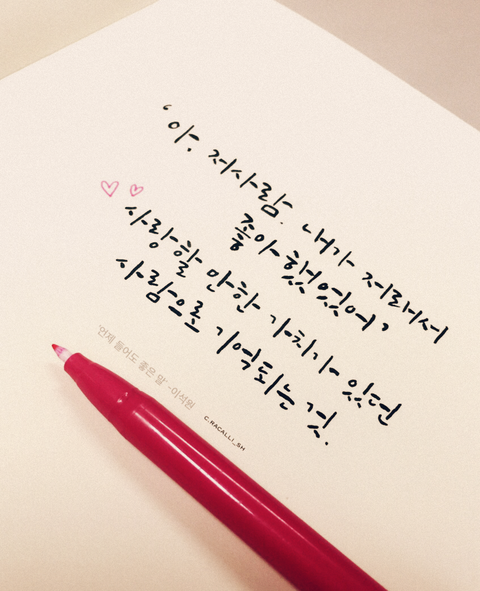 ‘아. 저사람. 내가 저래서
좋아했었어’
사랑할 만한 가치가 있던
사람으로 기억되는 것.
'언제 들어도 좋은 말' -이석원
C.RACALLI_SH